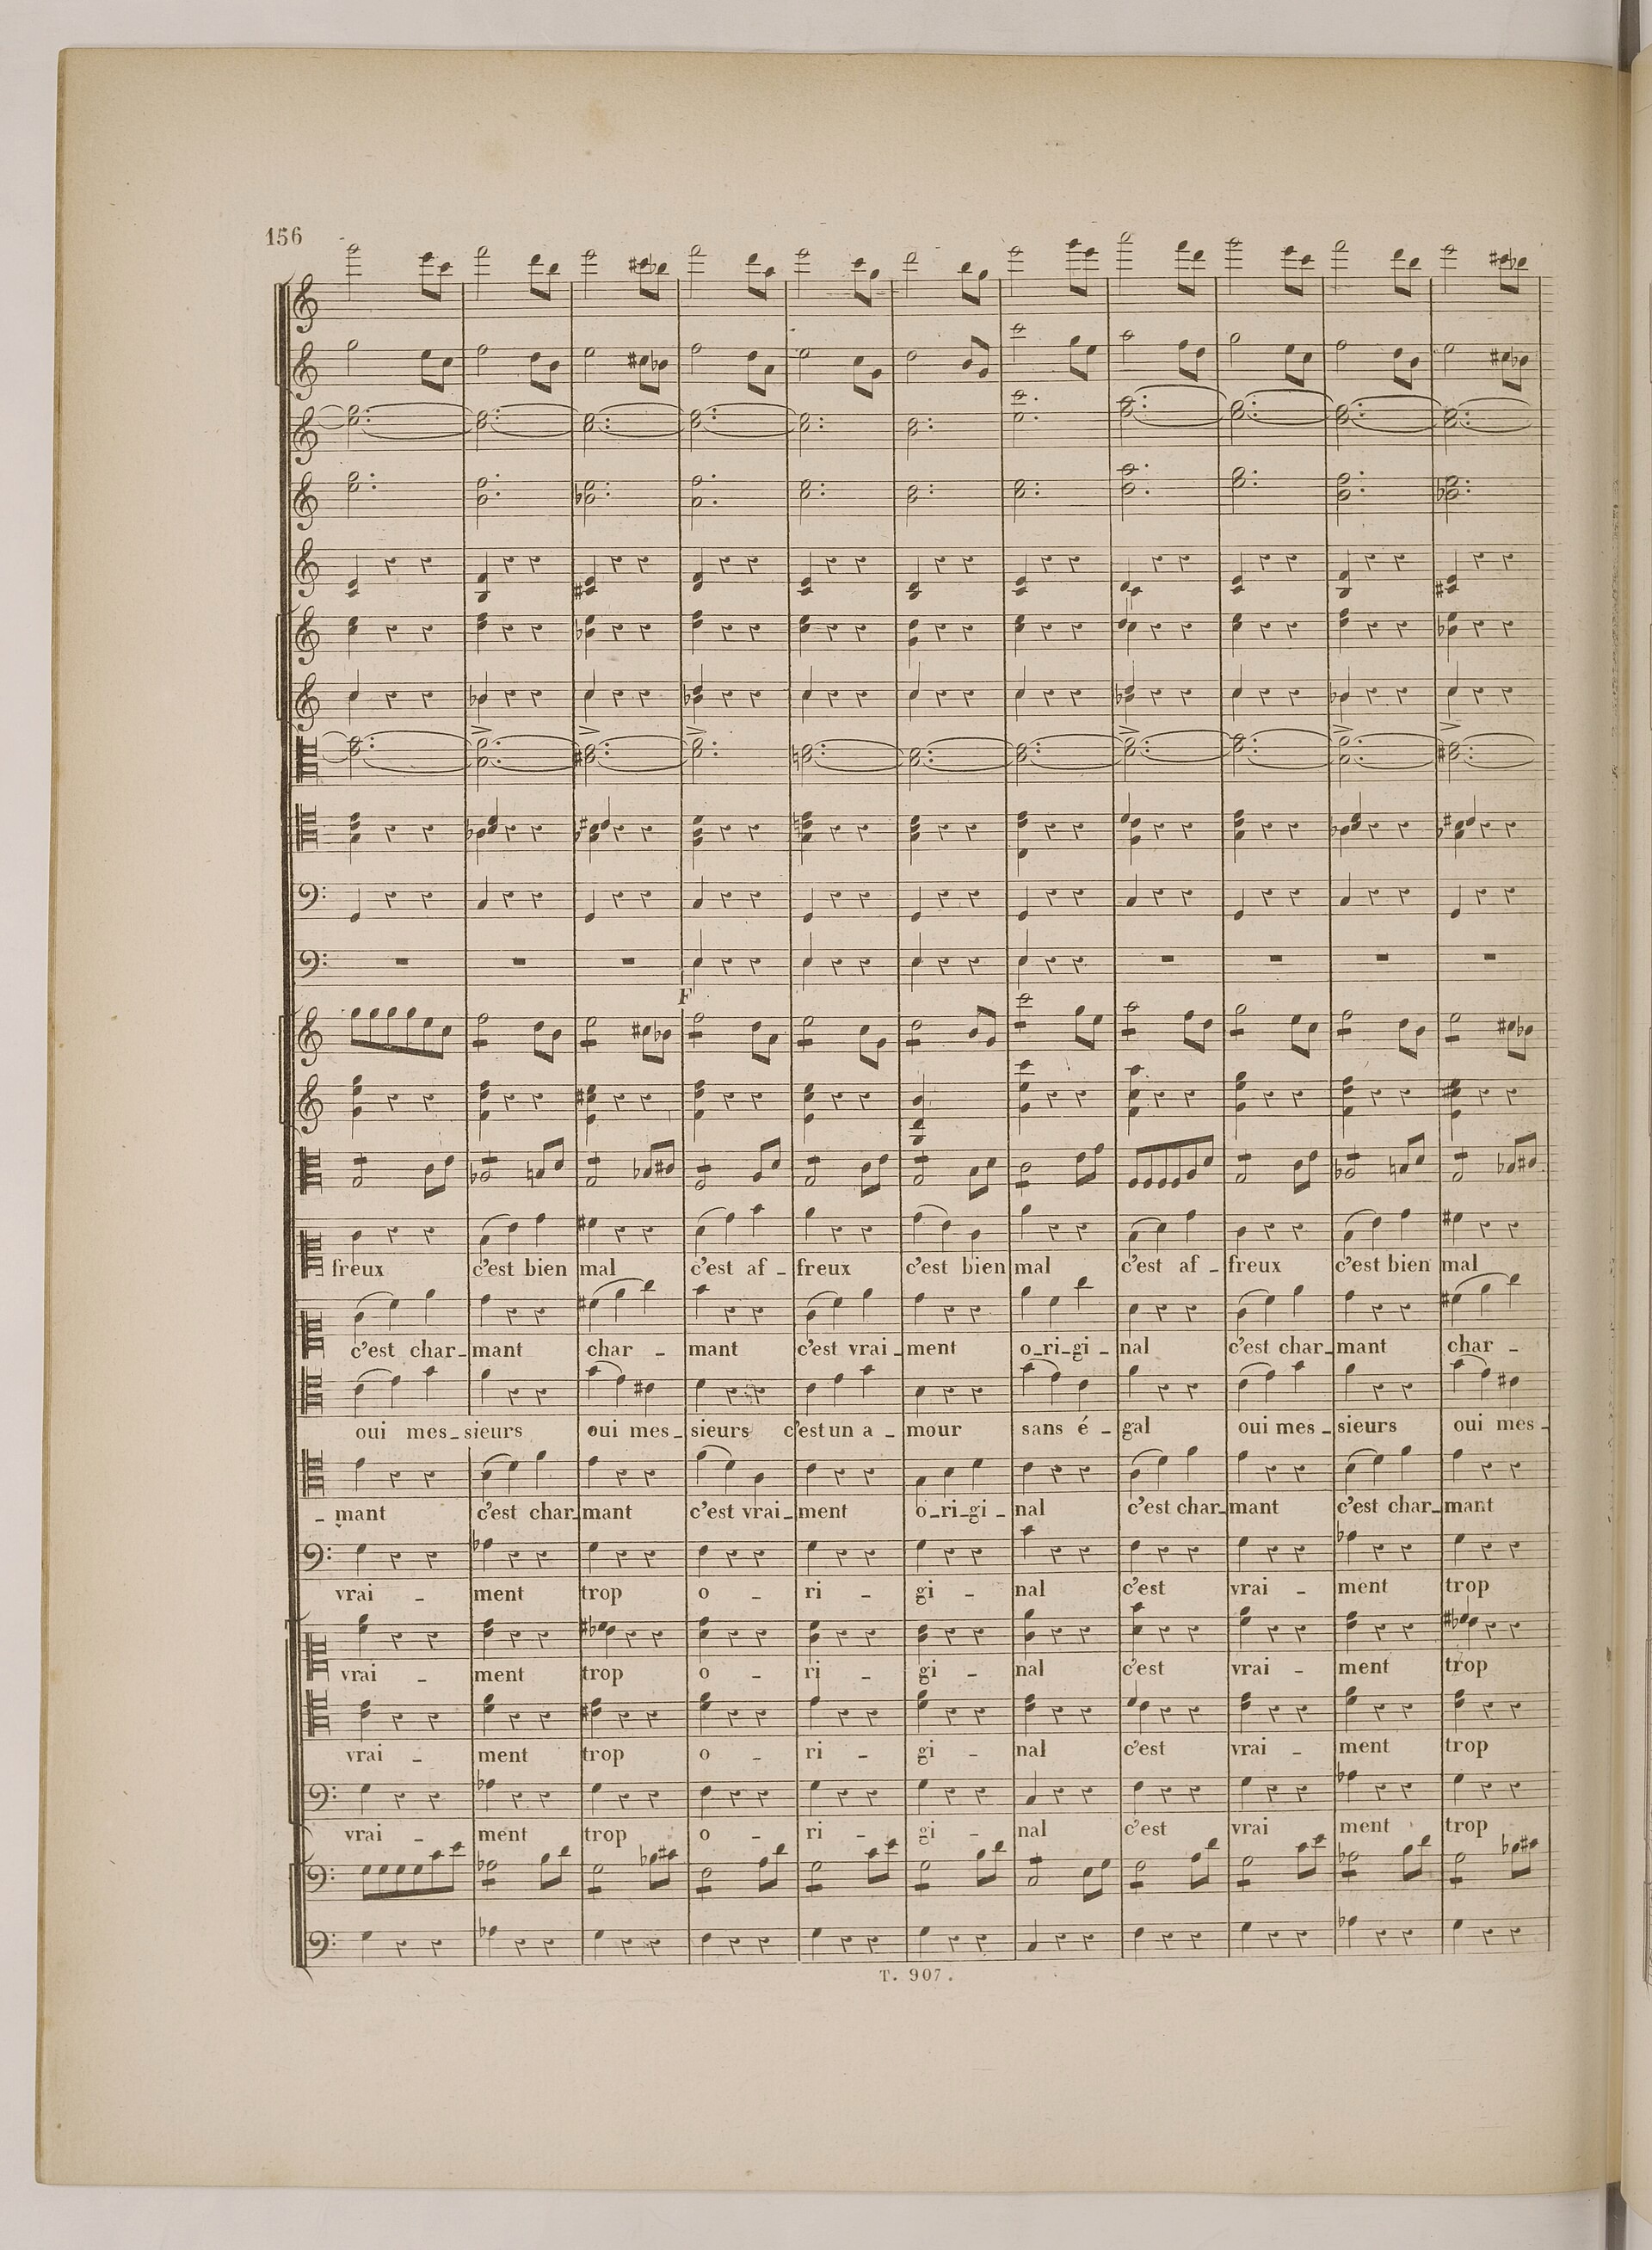 156
F
freux c'est bien mal c'est af - freux c'est bien mal c'est af - freux c'est bien mal
c'est char - mant char - mant c'est vrai - ment o - ri - gi - nal c'est char - mant char -
oui mes - sieurs oui mes - sieurs c'est un a - mour sans é - gal oui mes - sieurs oui mes -
- mant c'est char - mant c'est vrai - ment o - ri - gi - nal c'est char - mant c'est char - mant
vrai - ment trop o - ri - gi - nal c'est vrai - ment trop
vrai - ment trop o - ri - gi - nal c'est vrai - ment trop
vrai - ment trop o - ri - gi - nal c'est vrai - ment trop
vrai - ment trop o - ri - gi - nal c'est vrai ment trop
T. 907.